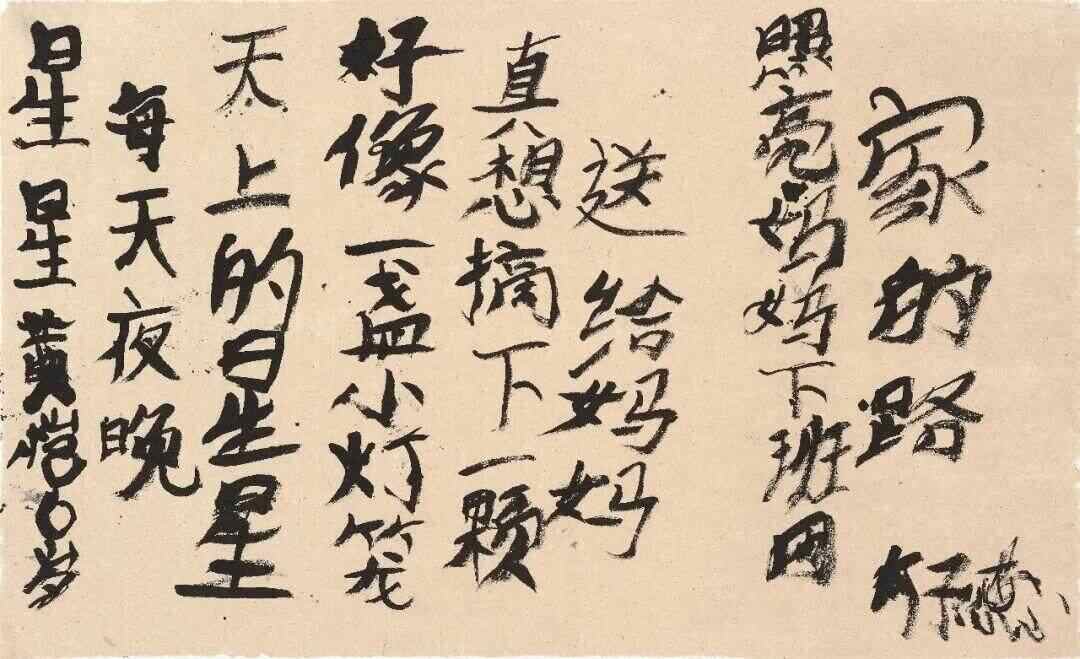 星星 黄恺 岁
每天夜晚
天上的星星
好像一盏小灯笼
真想摘下一颗
送给妈妈
照亮妈妈下班回
家的路